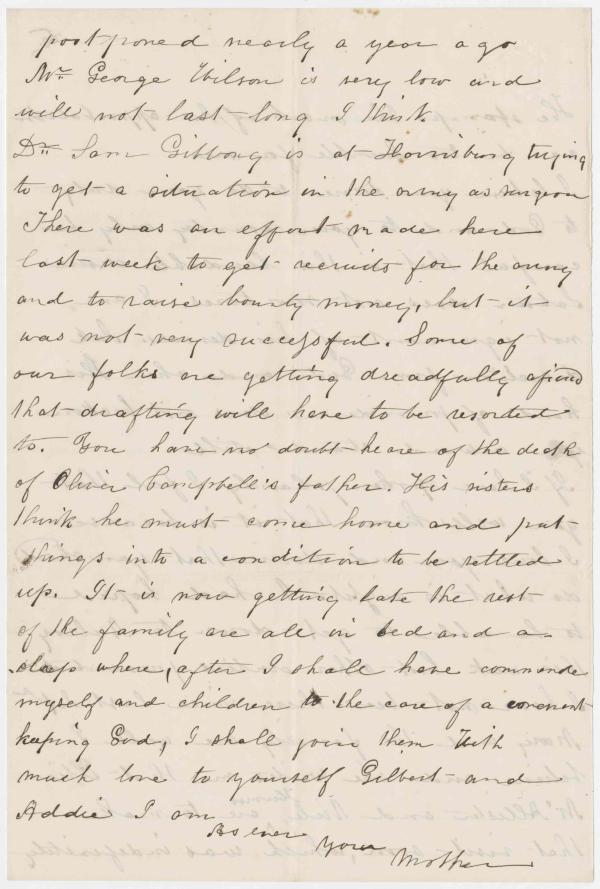 postponed nearly a year ago
Mr. George Wilson is very low and
will not last long I think.
Dr. Sam Gibbony is at Harrisburg trying
to get a situation in the army as surgeon
There was an effort made here
last week to get recruits for the army
and to raise bounty money, but it
was not very successful. Some of
our folks are getting dreadfully afraid
that drafting will have to be resorted
to. You have no doubt heare of the death
of Oliver Campbell's father. His sisters
think he must come home and put
things into a condition to be settled
up. It is now getting late the rest
of the family are all in bed and a
sleep where, after I shall have commende
myself and children to the care of a covenant
keeping God, I shall join them With
much love to yourself Gilbert and
Addie I am
As ever
Your
Mother